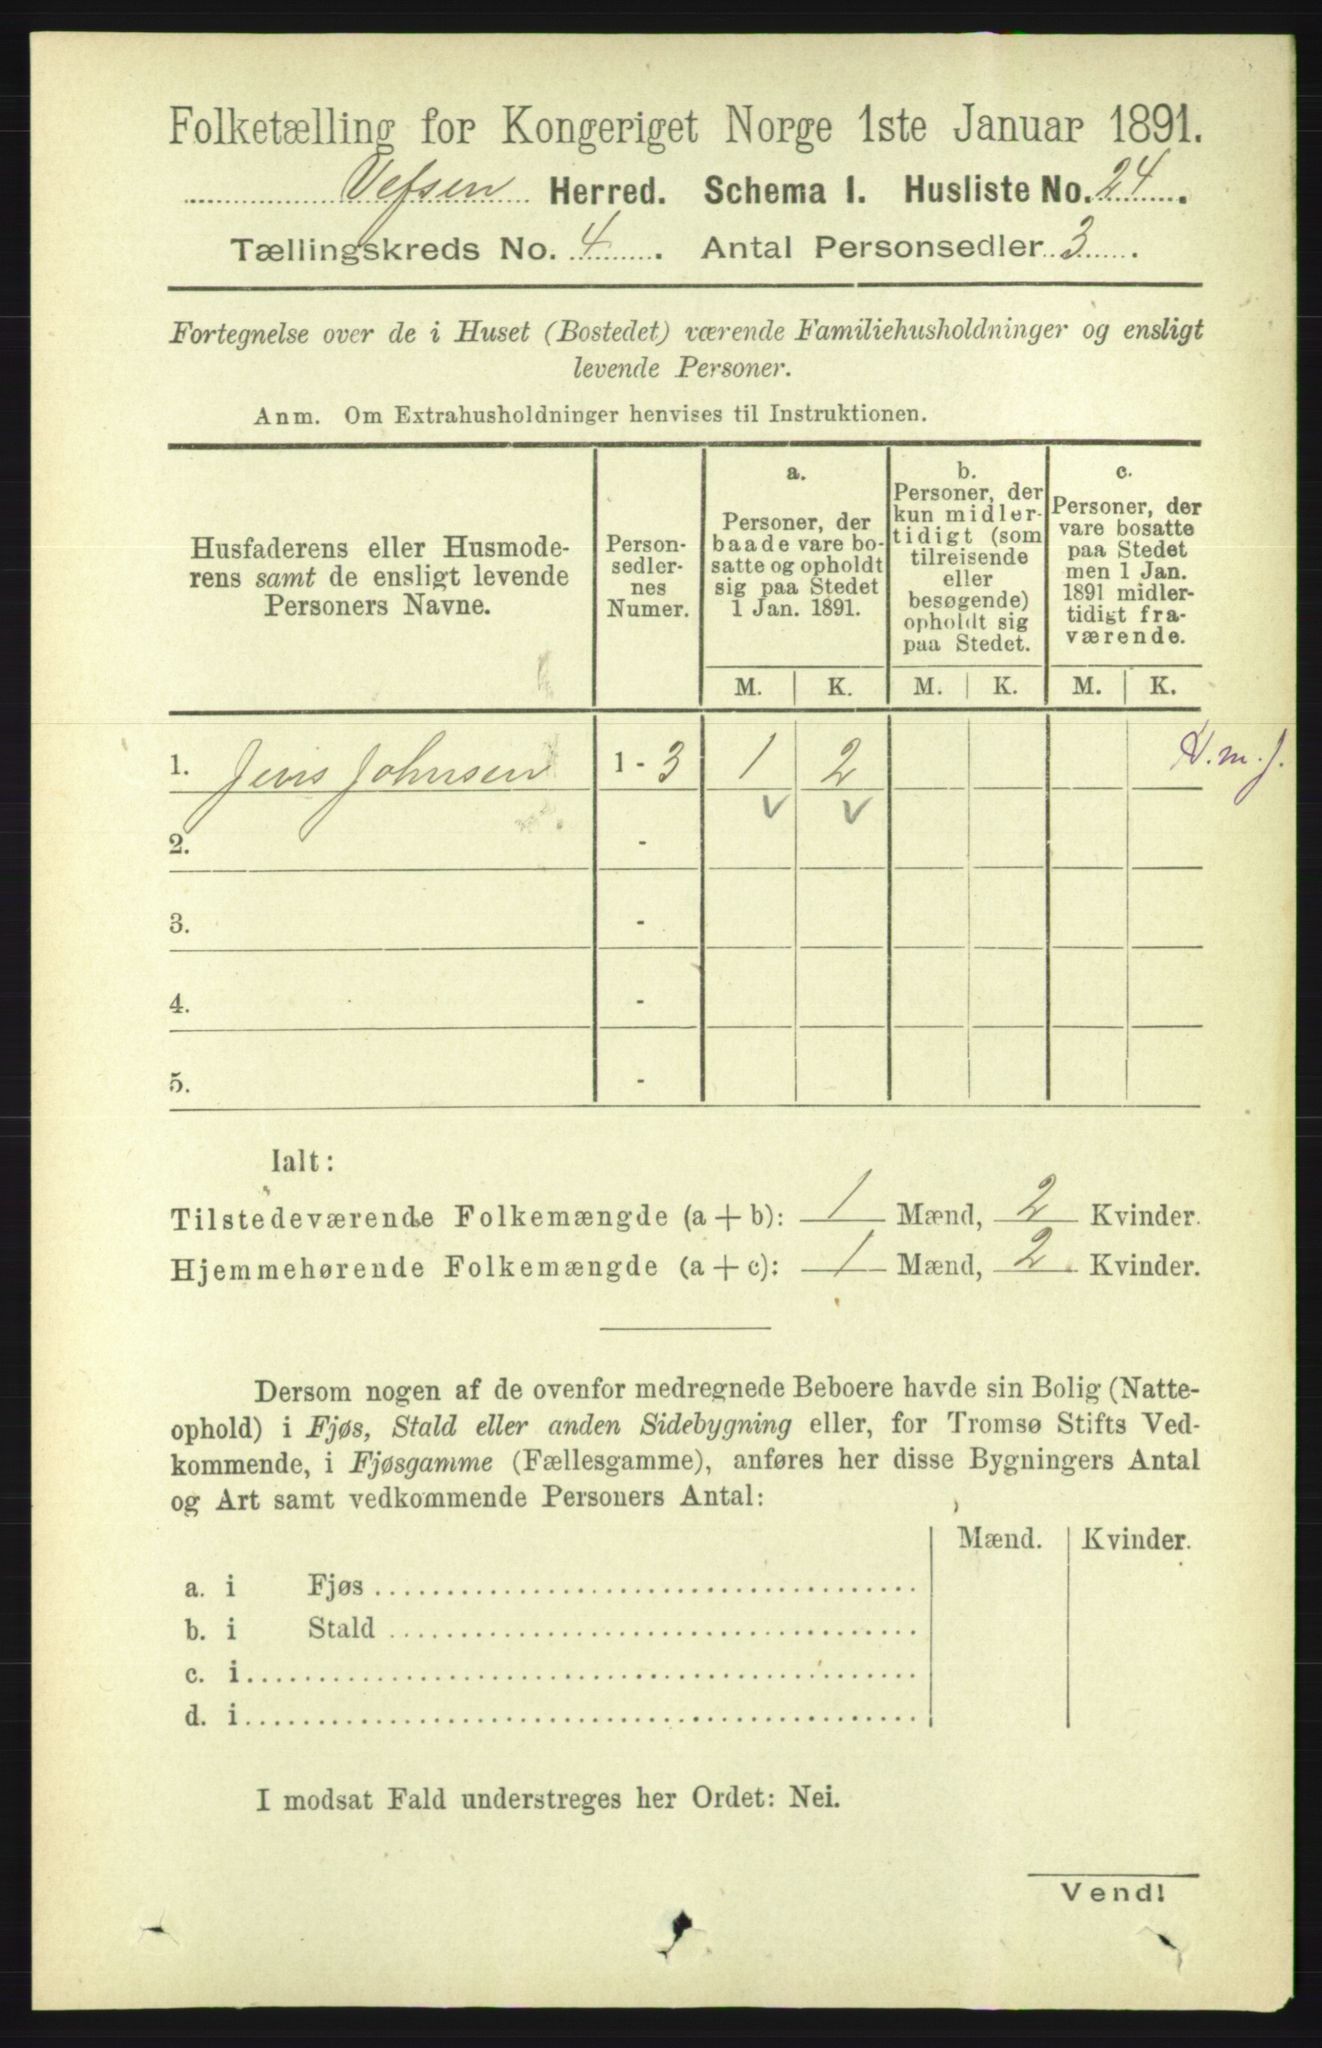 Folketælling for Kongeriget Norge 1ste Januar 1891.
Vefsen Herred. Schema I. Husliste No. 24.
Tællingskreds No. 4. Antal Personsedler 3.
Fortegnelse over de i Huset (Bostedet) værende Familiehusholdninger og ensligt
levende Personer.
Anm. Om Extrahusholdninger henvises til Instruktionen.
Husfaderens eller Husmode-
rens samt de ensligt levende
Personers Navne.
Person-
sedler-
nes
Numer.
a.
Personer, der
baade vare bo-
satte og opholdt
sig paa Stedet
1 Jan. 1891.
b.
Personer, der
kun midler-
tidigt (som
tilreisende
eller
besøgende)
opholdt sig
paa Stedet.
c.
Personer, der
vare bosatte
paa Stedet
men 1 Jan.
1891 midler-
tidigt fra-
værende.
M. K. M. K. M. K.
1. Jens Johnsen 1 - 3 1 2
v v
2. -
3. -
4. -
5. -
Ialt:
Tilstedeværende Folkemængde (a + b): 1 Mænd, 2 Kvinder.
Hjemmehørende Folkemængde (a + c): 1 Mænd, 2 Kvinder.
Dersom nogen af de ovenfor medregnede Beboere havde sin Bolig (Natte-
ophold) i Fjøs, Stald eller anden Sidebygning eller, for Tromsø Stifts Ved-
kommende, i Fjøsgamme (Fællesgamme), anføres her disse Bygningers Antal
og Art samt vedkommende Personers Antal:
Mænd. Kvinder.
a. i Fjøs
b. i Stald
c. i
d. i
I modsat Fald understreges her Ordet: Nei.
Vend!